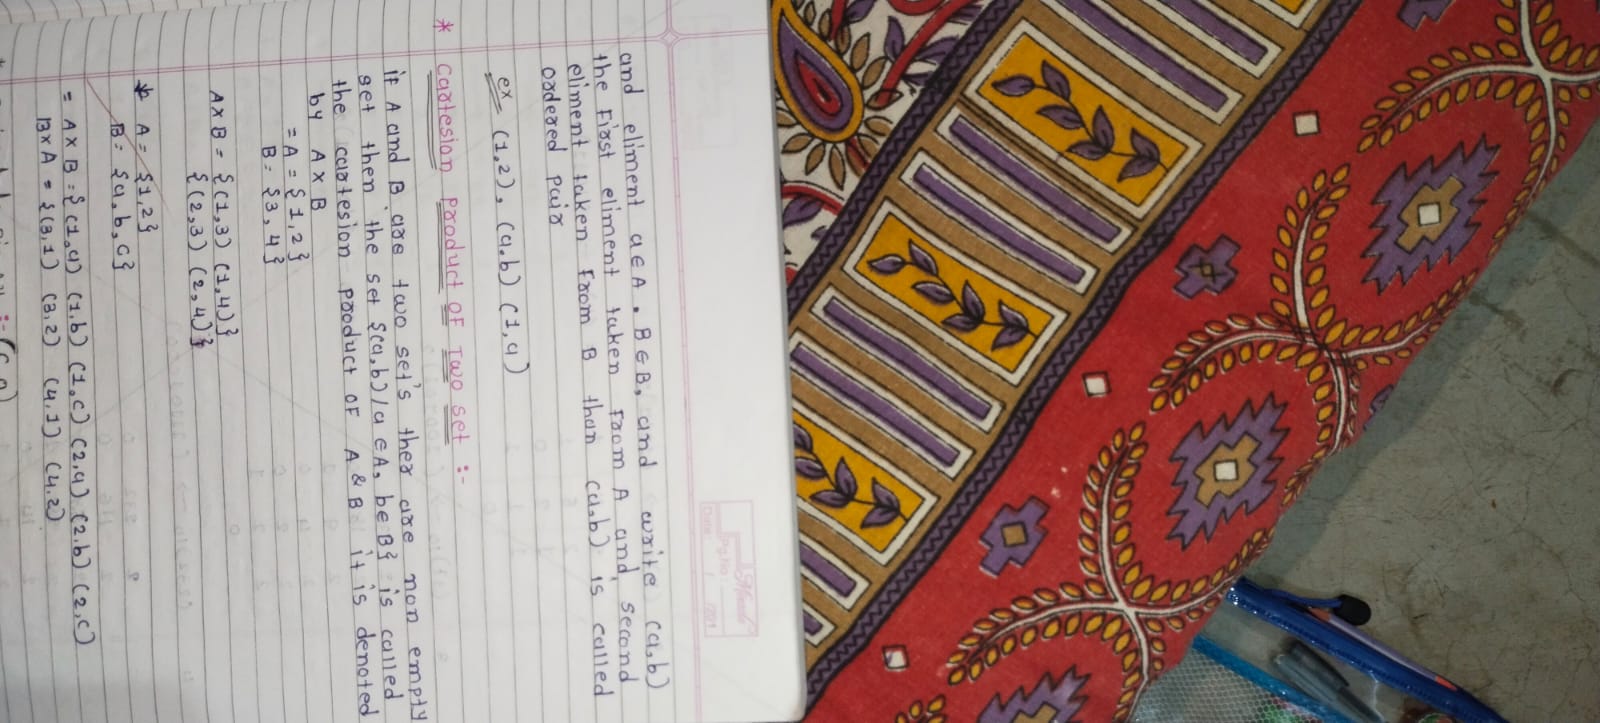 Date: / /201
and eliment a∈A. B∈B, and write (a,b)
the First eliment taken From A and second
eliment taken From B than (a,b) is called
ordered pair
ex = (1,2), (a,b) (1,a)
* cartesion product OF Two set :-
if A and B are two set's ther are non empty
set then the set {(a,b)/a∈A, b∈B} is called
the cartesion product OF A & B it is denoted
by A×B
= A = {1,2}
B = {3,4}
A×B = {(1,3) (1,4)}
{(2,3) (2,4)}
* A = {1,2}
B = {a,b,c}
= A×B = {(1,a) (1,b) (1,c) (2,a) (2,b) (2,c)
B×A = {(3,1) (3,2) (4,1) (4,2)